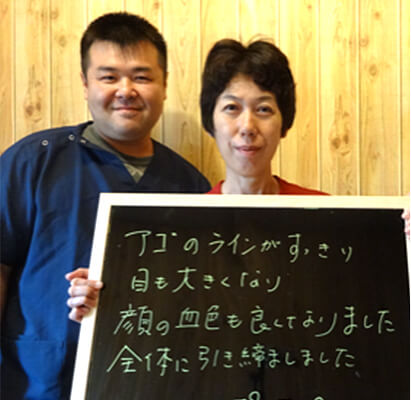 アゴのラインがすっきり
目も大きくなり
顔の血色も良くなりました
全体に引き締ましました